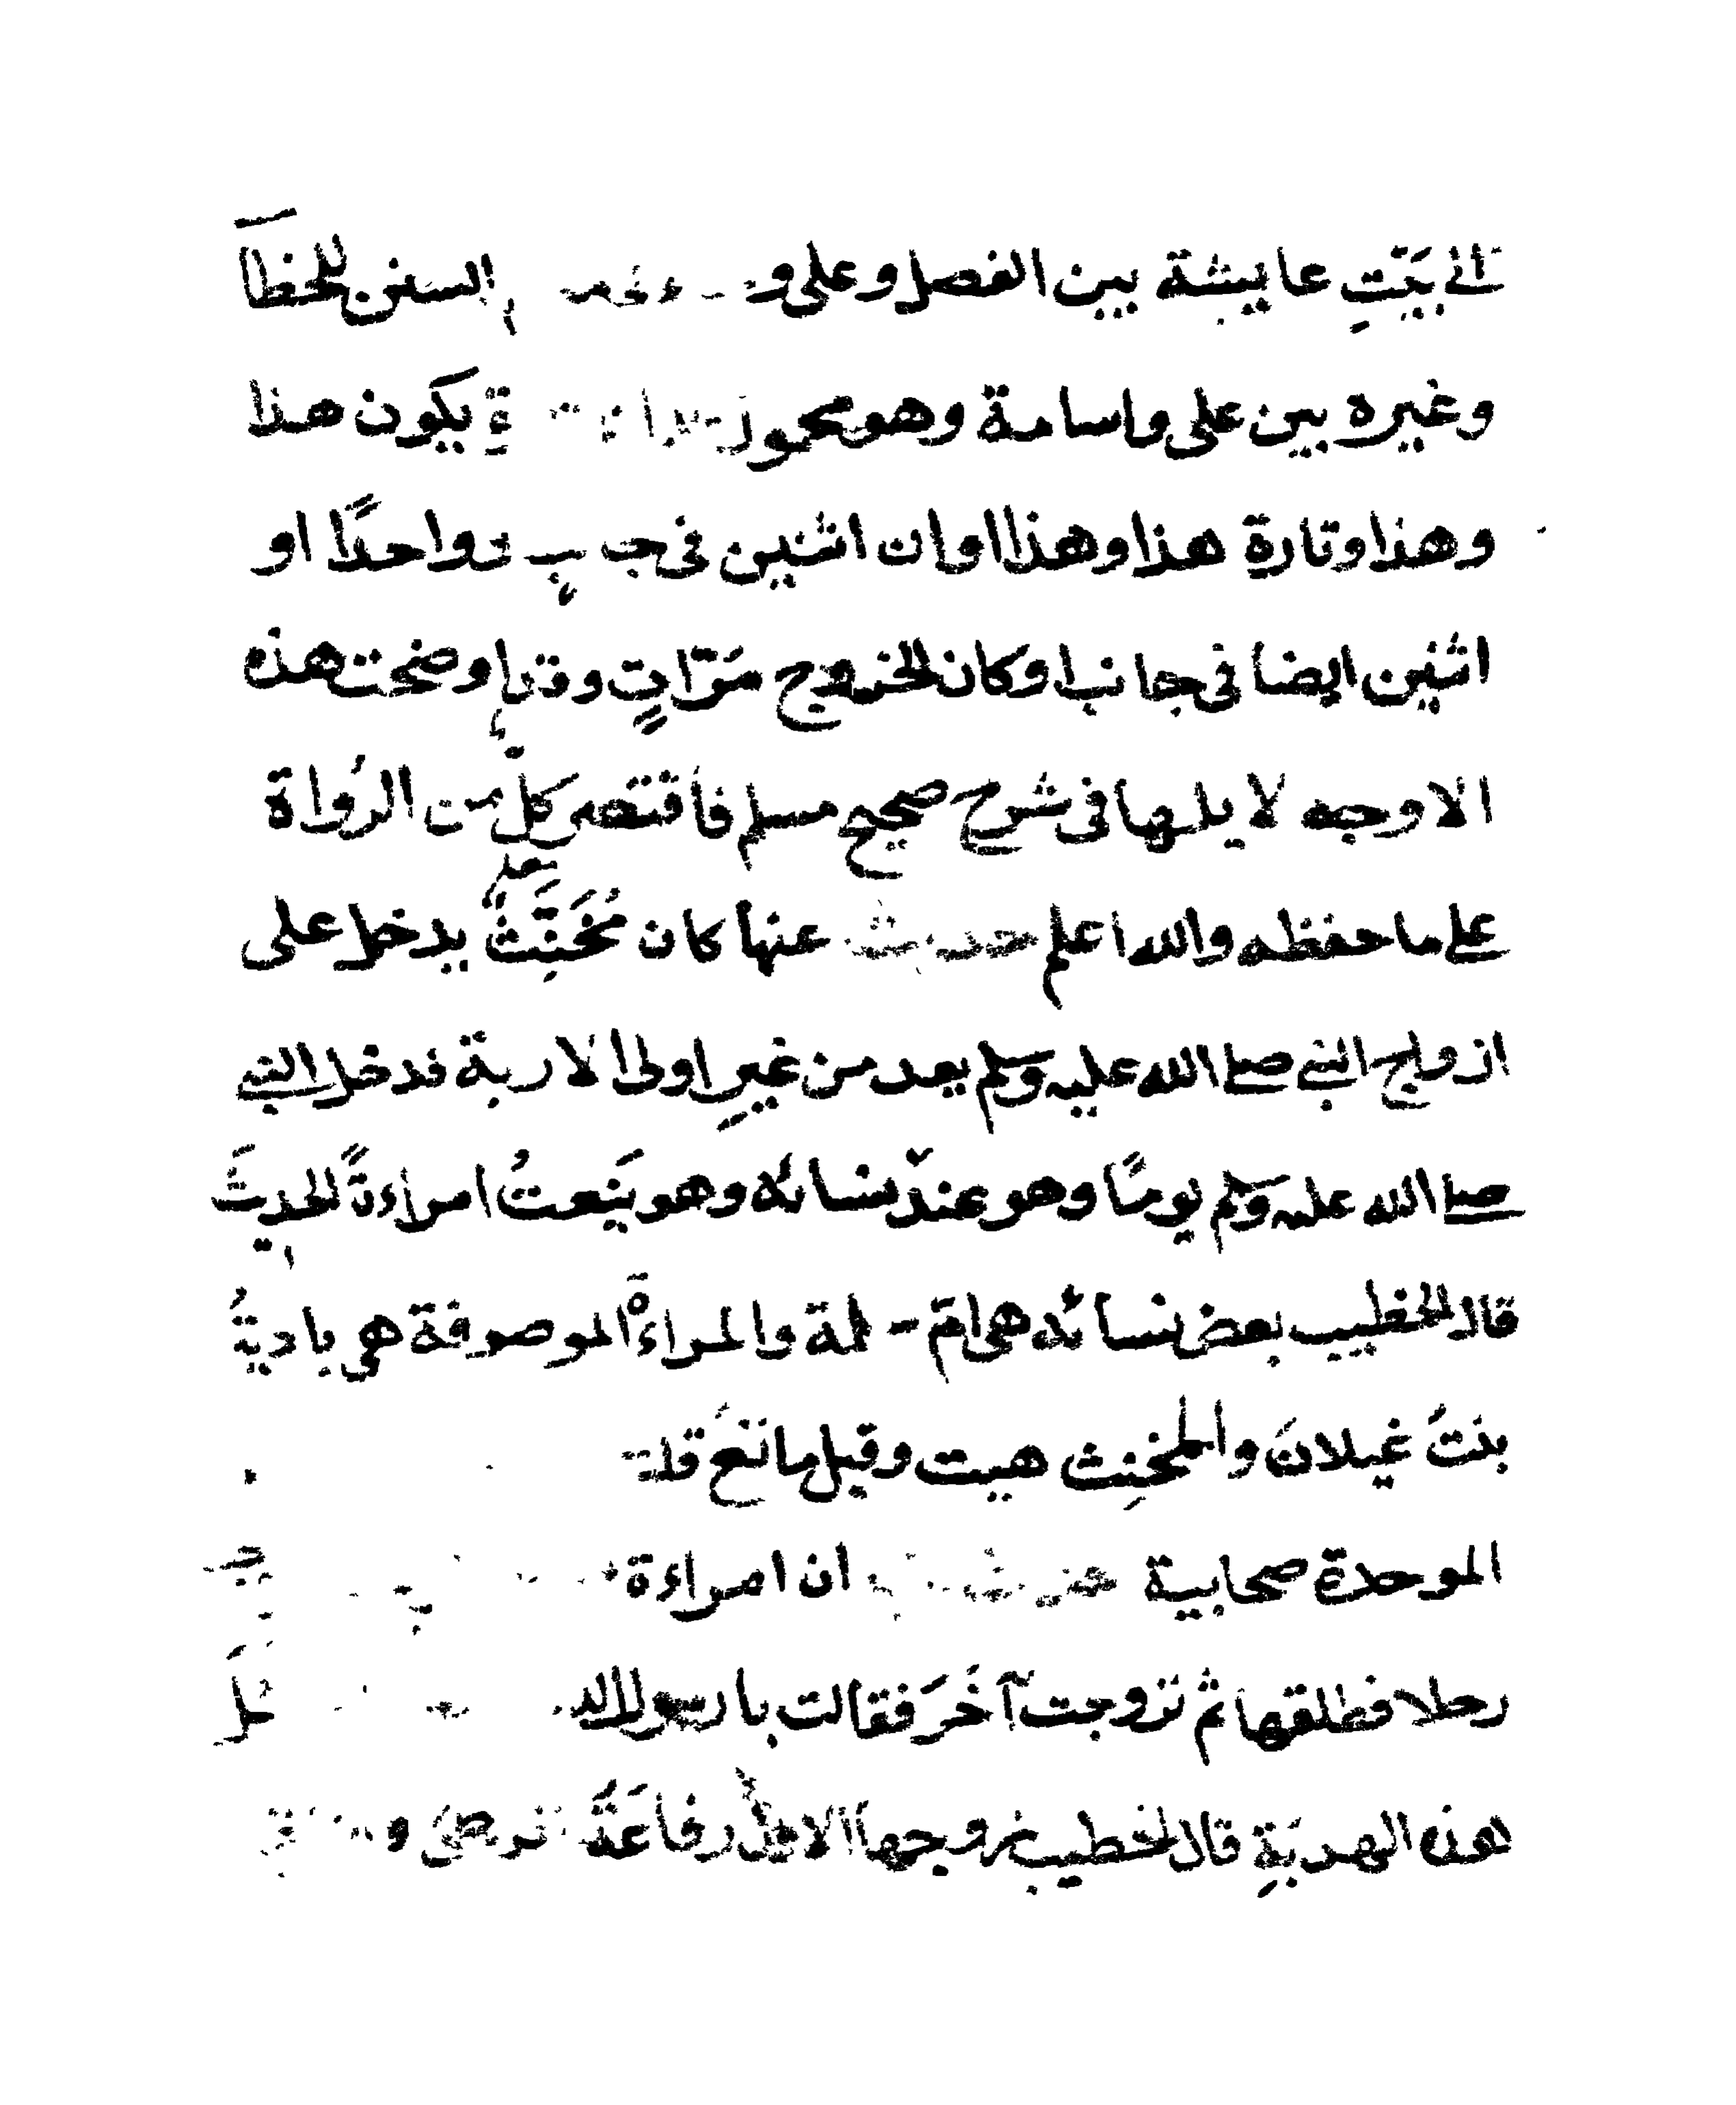 الى بَيْتِ عايشة بين الفضل وعلى و السنن للخطا
وغيره بين على واسامة وهو محمول يكون هذا
وهذا وتارة هذا وهذا او ان اثنين فى واحدًا او
اثنين ايضا فى جانب او كان الخروج مَرّاتٍ وقد اوضحت هذه
الاوجه لا يلها فى شرح صحيح مسلم فاقتصر كلٌّ من الرُواة
على ما حفظه والله اعلم حديث عنها كان مُخَنِّثٌ يدخل على
ازواج النبى صلى الله عليه وسلم يعد من غيرِ اولى الاربة فدخل النبى
صلى الله عليه وسلم يومًا وهو عند نسائه وهو يَنعتُ امراءةً الحديثَ
قال الخطيب بعض نسائه هى امّ سلمة والمراءة الموصوفة هى باديةُ
بنتُ غيلانَ والمخنِث هيت وقيل ماتع قلت
الموحدة صحابية ان امراءة
رجلا فطلقها ثم تزوجت آخَرَ فقالت يا رسول الله
هذه الهدبَةِ قال الخطيب زوجها الاول رفاعَةُ